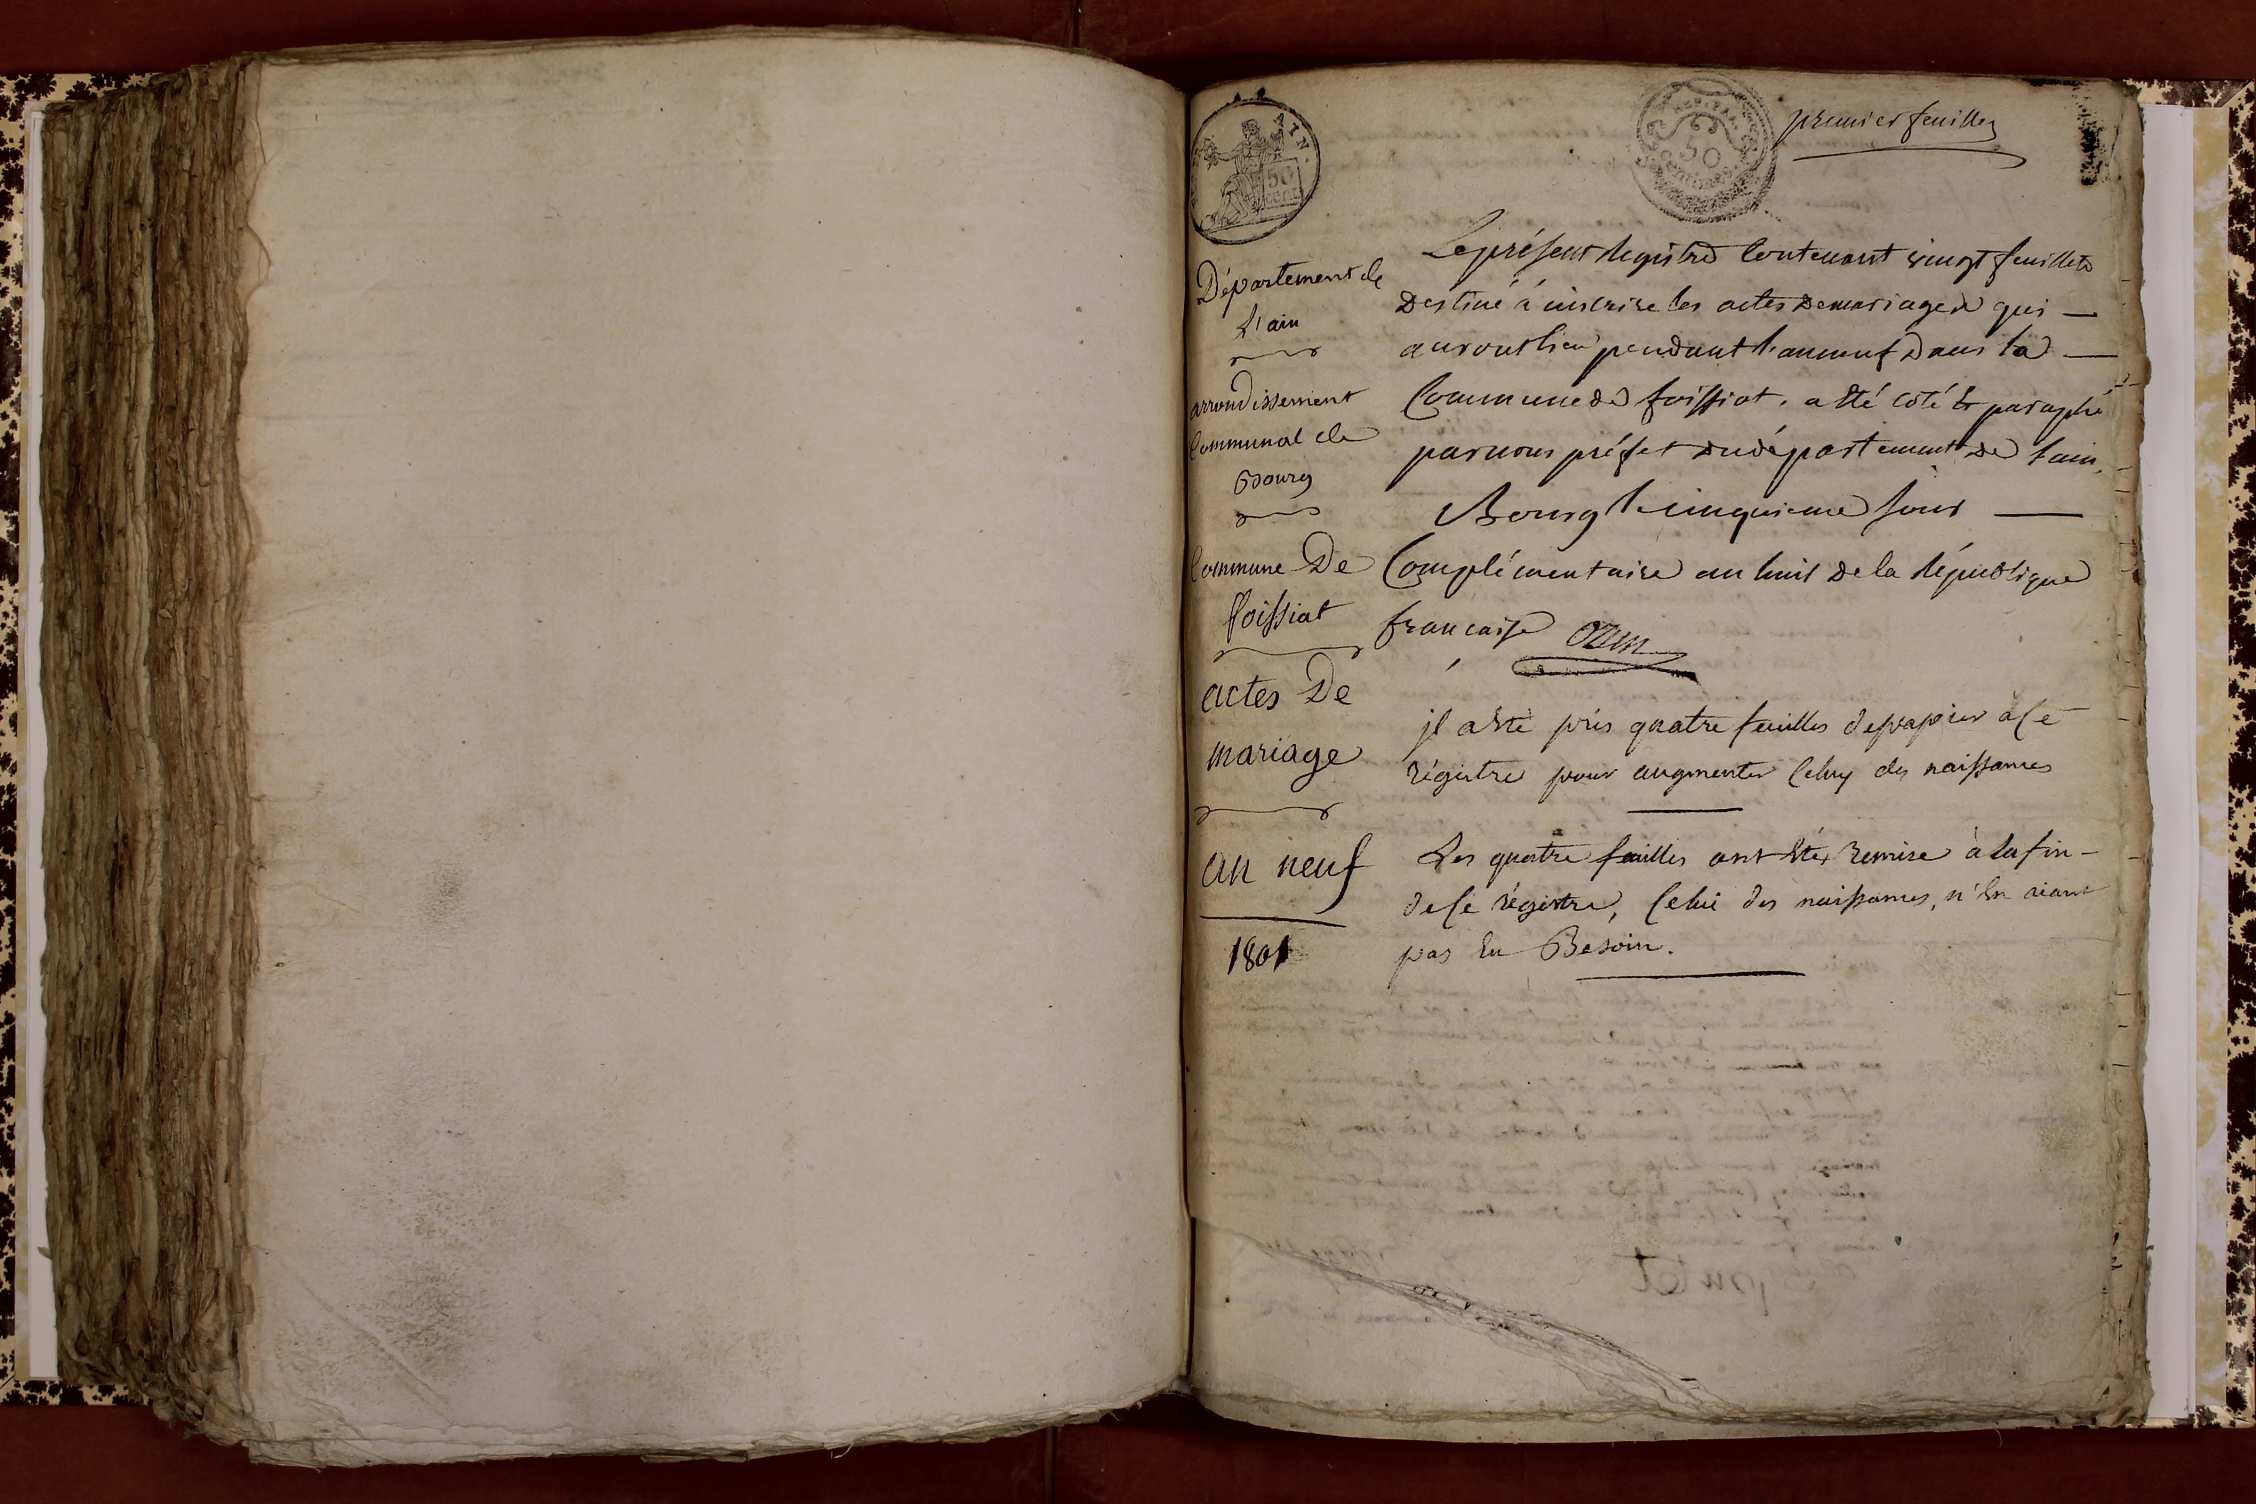 AIN.
50
CENT.
50
Centimes
premier feuillet
Département de
L'ain
arrondissement
Communal de
Bourg
Commune De
foissiat
actes De
mariage
an neuf
1801
Le présent Registre Contenant vingt feuillets
Destiné à inscrire les actes de mariages qui —
auront lieu pendant l'an neuf Dans la —
Commune de foissiat. a été coté et paraphé
par nous préfet du département de l'ain.
Bourg le cinquieme jour —
Complémentaire an huit de la République
francaise Ozun
jl a Eté pris quatre feuilles de papier à Ce
régistre pour augmenter Celuy des naissances
Les quatre feuilles ont Eté remise à la fin -
de Ce régistre, Celui des naissances, n'En aiant
pas Eu Besoin.